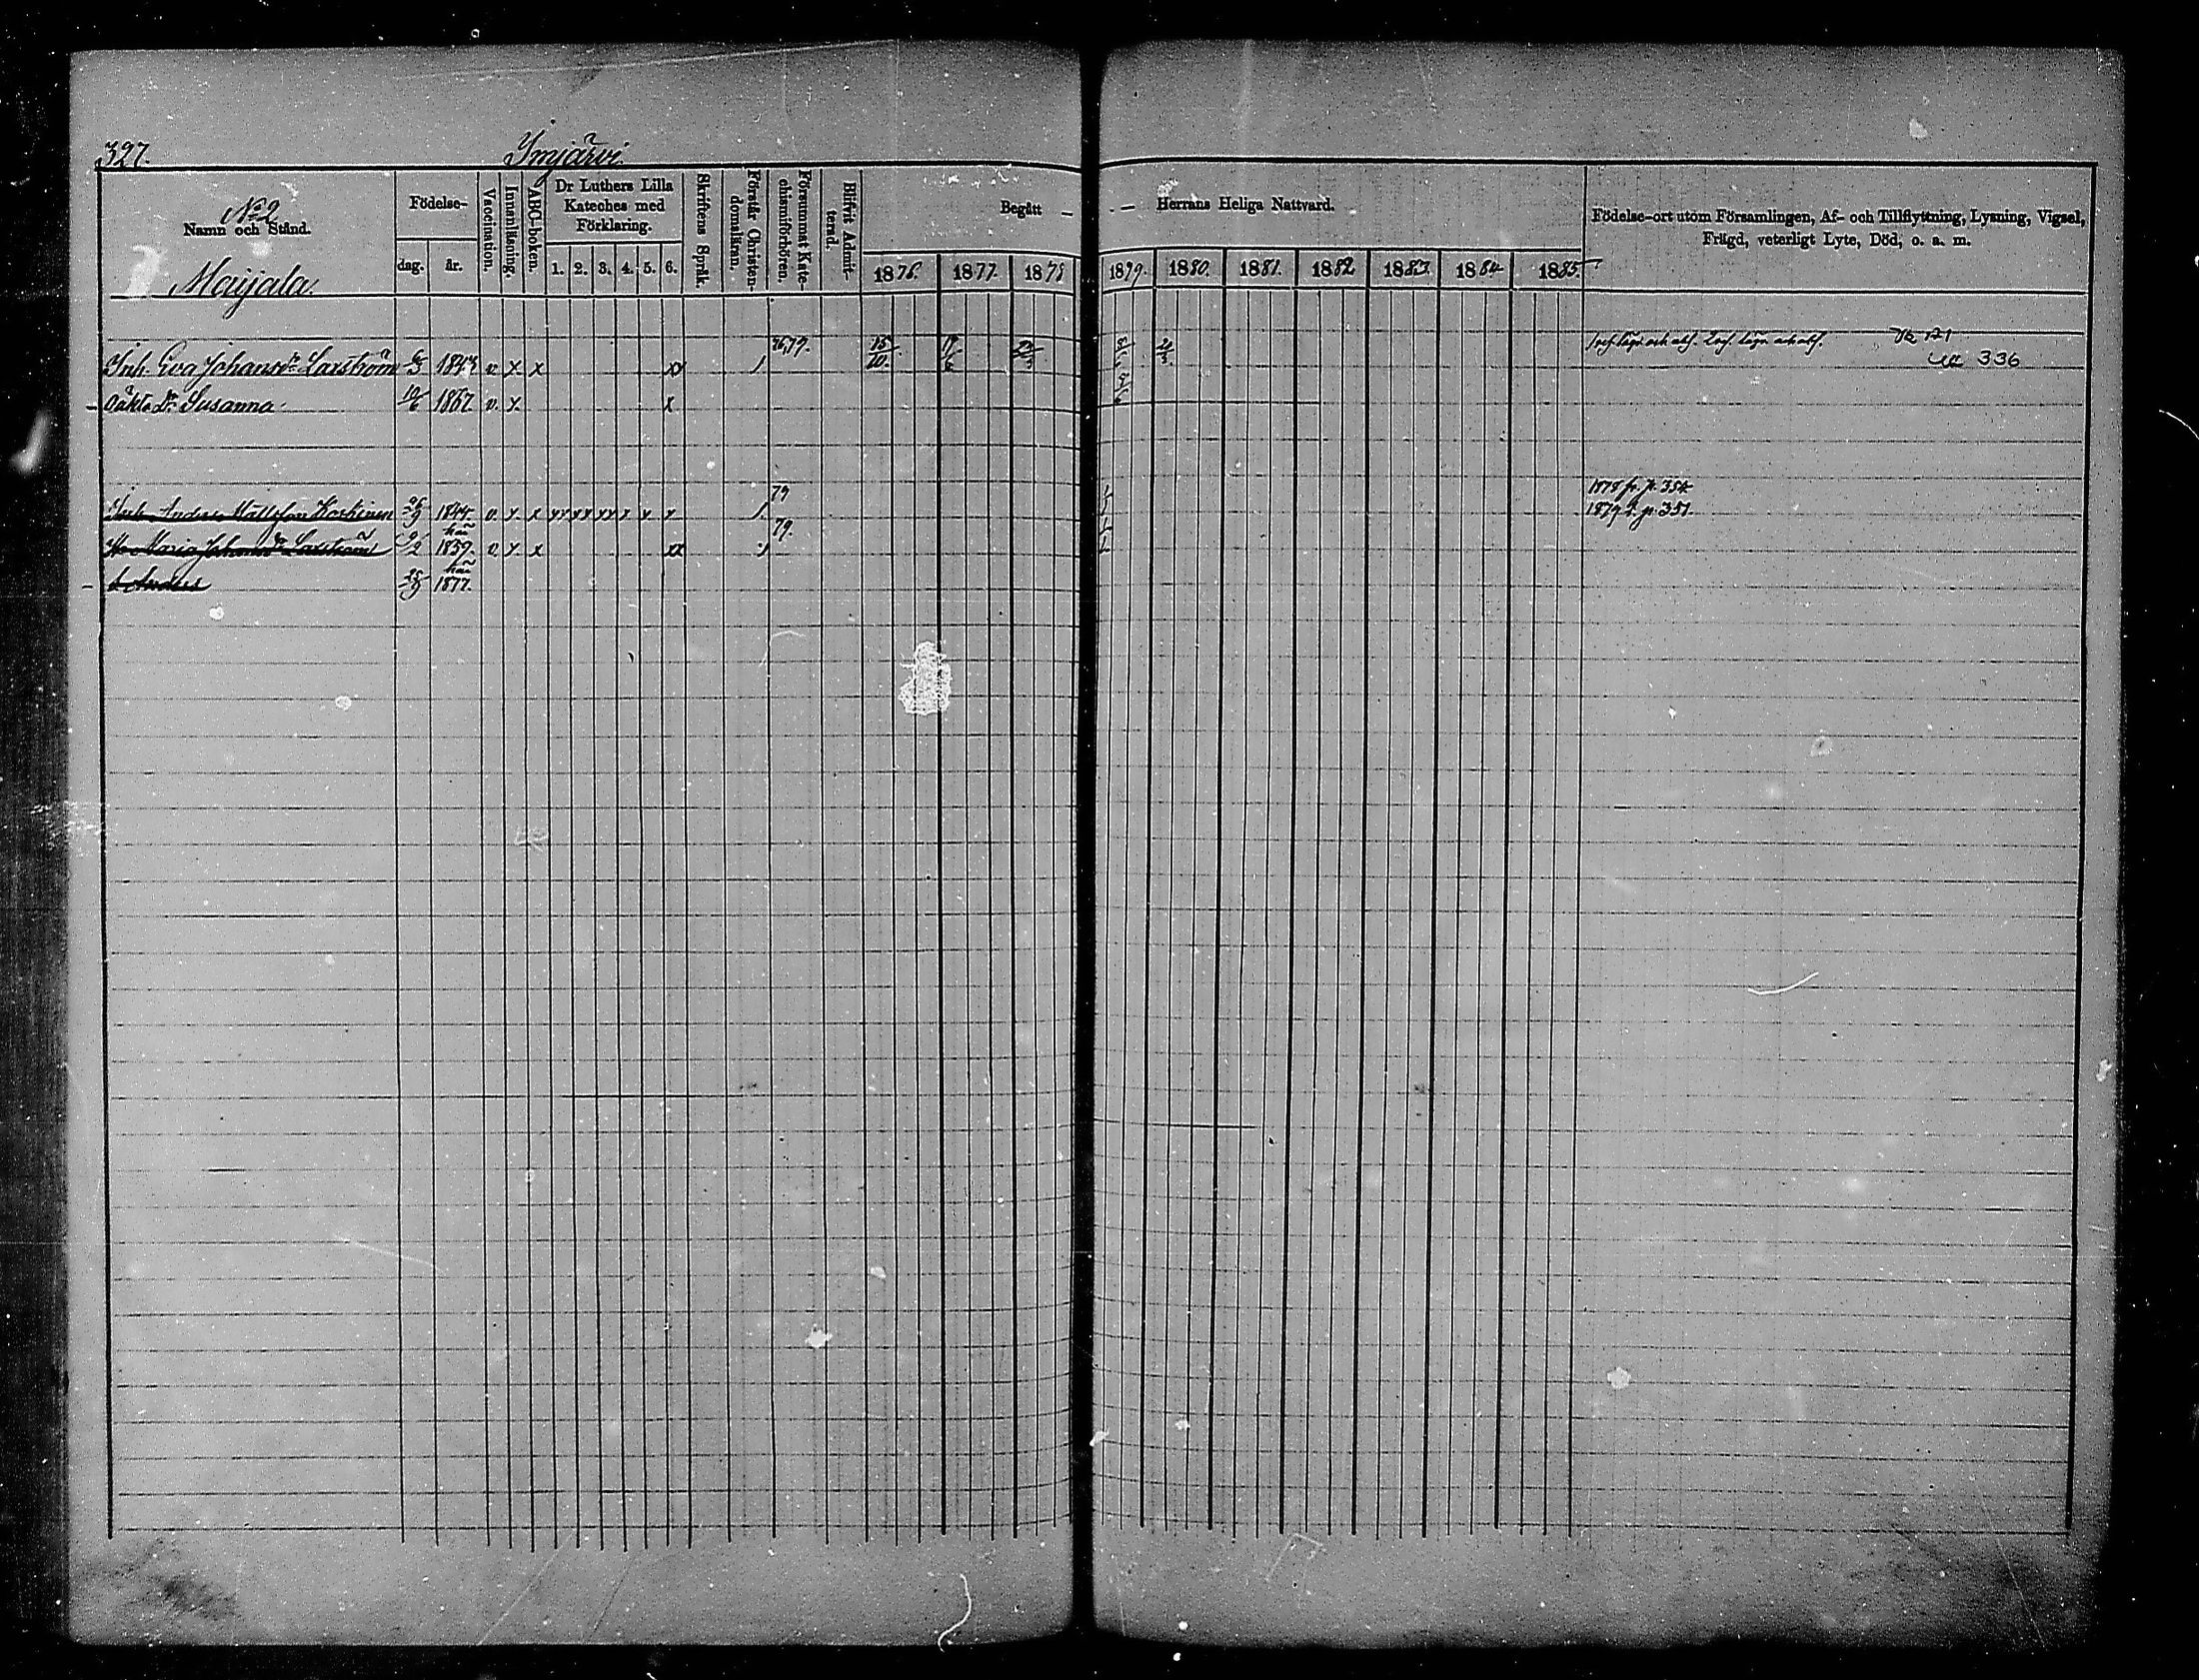 327. Imjärvi.
No 2
Namn och Stånd.
Maijala.
Födelse-
dag. år.
Vaccination.
Innanläsning.
ABC-boken.
Dr Luthers Lilla
Kateches med
Förklaring.
1. 2. 3. 4. 5. 6.
Skriftens Språk.
Förstår Christen-
domsläran.
Försummat Kate-
chismiförhören.
Blifvit Admit-
terad.
Begått — — Herrans Heliga Nattvard.
1876. 1877. 1878 1879. 1880. 1881. 1882 1883. 1884. 1885
Födelse-ort utom Församlingen, Af- och Tillflyttning, Lysning, Vigsel,
Frägd, veterligt Lyte, Död, o. s. m.
76,77.
Inh. Eva Johansdr Laxström 1843 v. x x xx / 336
oäkta Dr Susanna 10/6 1867. v. x. x
79 1878 fr. p. 354
Inh. Anders Mattsson Koskinen 1844. v. x. x xx xx xx x x x / 1879 t. p. 351.
79.
Hu Maria Johansdr Laxström 1859. v. x x xx
s. Anders 25/9 1877.